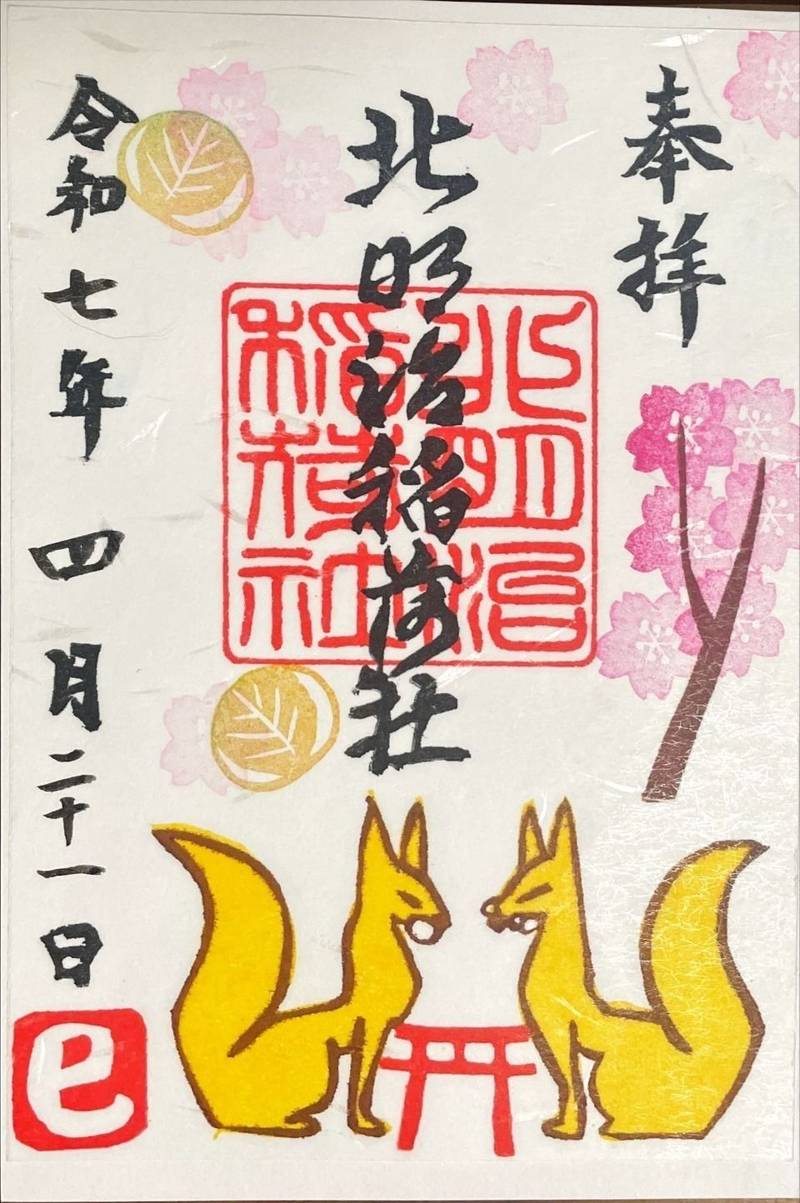 奉拝
北明治稲荷社
北明治
稲荷社
令和七年四月二十一日
巳